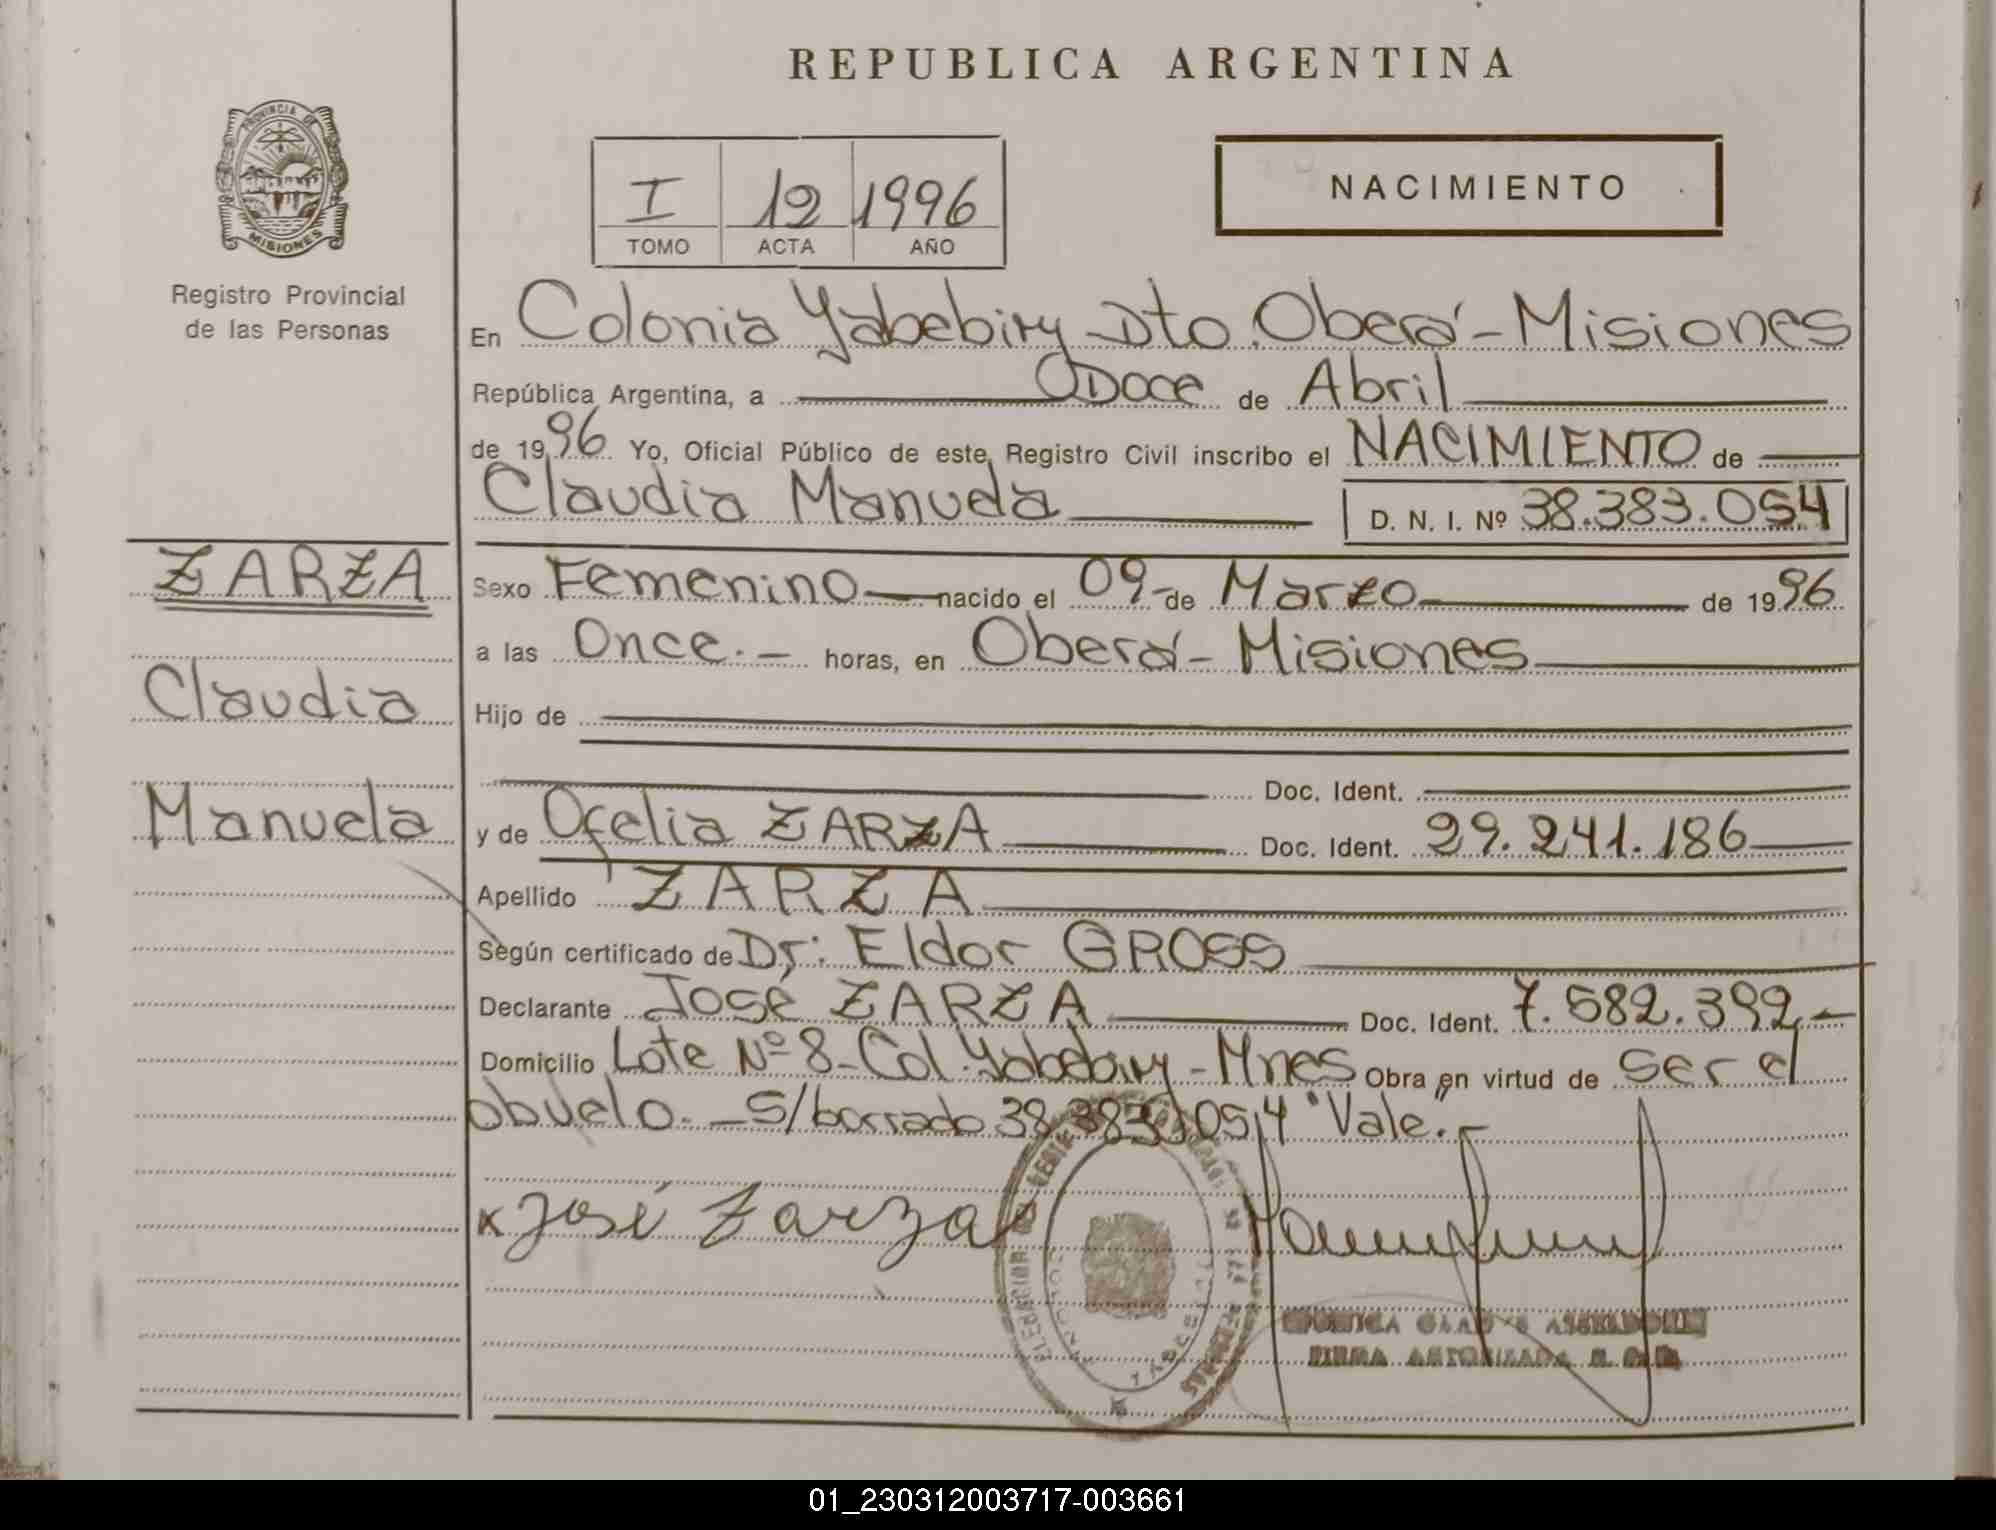 REPUBLICA ARGENTINA
PROVINCIA DE
MISIONES
Registro Provincial
de las Personas
I 12 1996
TOMO ACTA AÑO
NACIMIENTO
En Colonia Yabebiry Dto. Oberá - Misiones
República Argentina, a Doce de Abril
de 1996 Yo, Oficial Público de este Registro Civil inscribo el NACIMIENTO de
Claudia Manuela
D. N. I. Nº 38.383.054
ZARZA
Claudia
Manuela
Sexo Femenino nacido el 09 de Marzo de 1996
a las Once.- horas, en Oberá - Misiones
Hijo de
Doc. Ident.
y de Ofelia ZARZA Doc. Ident. 29.241.186
Apellido ZARZA
Según certificado de Dr: Eldor GROSS
Declarante José ZARZA Doc. Ident. 7.582.392.-
Domicilio Lote Nº 8 - Col. Yabebiry - Mnes Obra en virtud de ser el
abuelo. - S/borrado 38.383.054 "Vale".-
x José Zarza
FIRMA AUTORIZADA
01_230312003717-003661